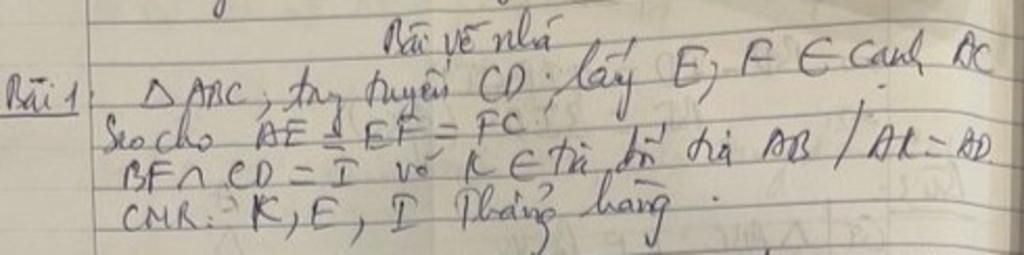 Bài về nhà
Bài 1 Δ ABC, trg tuyến CD. lấy E, F ∈ cạnh AC
Sao cho AE = EF = FC.
BF ∩ CD = I vẽ K ∈ tia đối tia AB / AK = AD
CMR: K, E, I thẳng hàng.